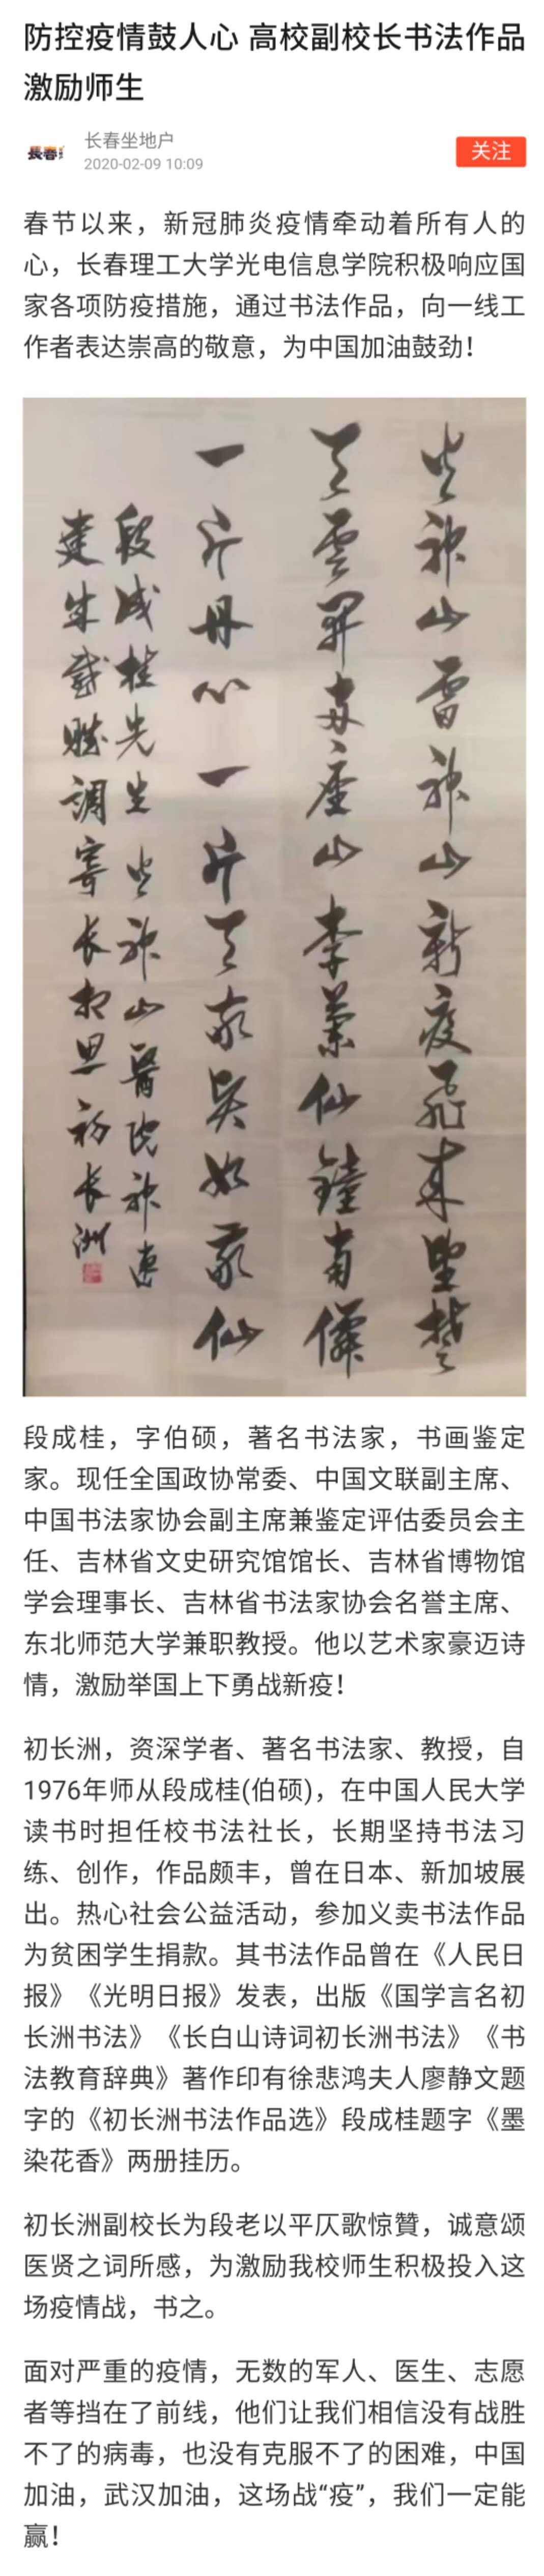 防控疫情鼓人心 高校副校长书法作品
激励师生
长春
长春坐地户
2020-02-09 10:09
关注
春节以来，新冠肺炎疫情牵动着所有人的
心，长春理工大学光电信息学院积极响应国
家各项防疫措施，通过书法作品，向一线工
作者表达崇高的敬意，为中国加油鼓劲！
火神山雷神山新疫飞来坚楚
天雲開 座山李蘭仙鍾南
一片丹心一片天敬 如敬仙
段成桂先生火神山醫院神速
建成感賦調寄长相思初长洲
段成桂，字伯硕，著名书法家，书画鉴定
家。现任全国政协常委、中国文联副主席、
中国书法家协会副主席兼鉴定评估委员会主
任、吉林省文史研究馆馆长、吉林省博物馆
学会理事长、吉林省书法家协会名誉主席、
东北师范大学兼职教授。他以艺术家豪迈诗
情，激励举国上下勇战新疫！
初长洲，资深学者、著名书法家、教授，自
1976年师从段成桂(伯硕)，在中国人民大学
读书时担任校书法社长，长期坚持书法习
练、创作，作品颇丰，曾在日本、新加坡展
出。热心社会公益活动，参加义卖书法作品
为贫困学生捐款。其书法作品曾在《人民日
报》《光明日报》发表，出版《国学言名初
长洲书法》《长白山诗词初长洲书法》《书
法教育辞典》著作印有徐悲鸿夫人廖静文题
字的《初长洲书法作品选》段成桂题字《墨
染花香》两册挂历。
初长洲副校长为段老以平仄歌惊赞，诚意颂
医贤之词所感，为激励我校师生积极投入这
场疫情战，书之。
面对严重的疫情，无数的军人、医生、志愿
者等挡在了前线，他们让我们相信没有战胜
不了的病毒，也没有克服不了的困难，中国
加油，武汉加油，这场战“疫”，我们一定能
赢！